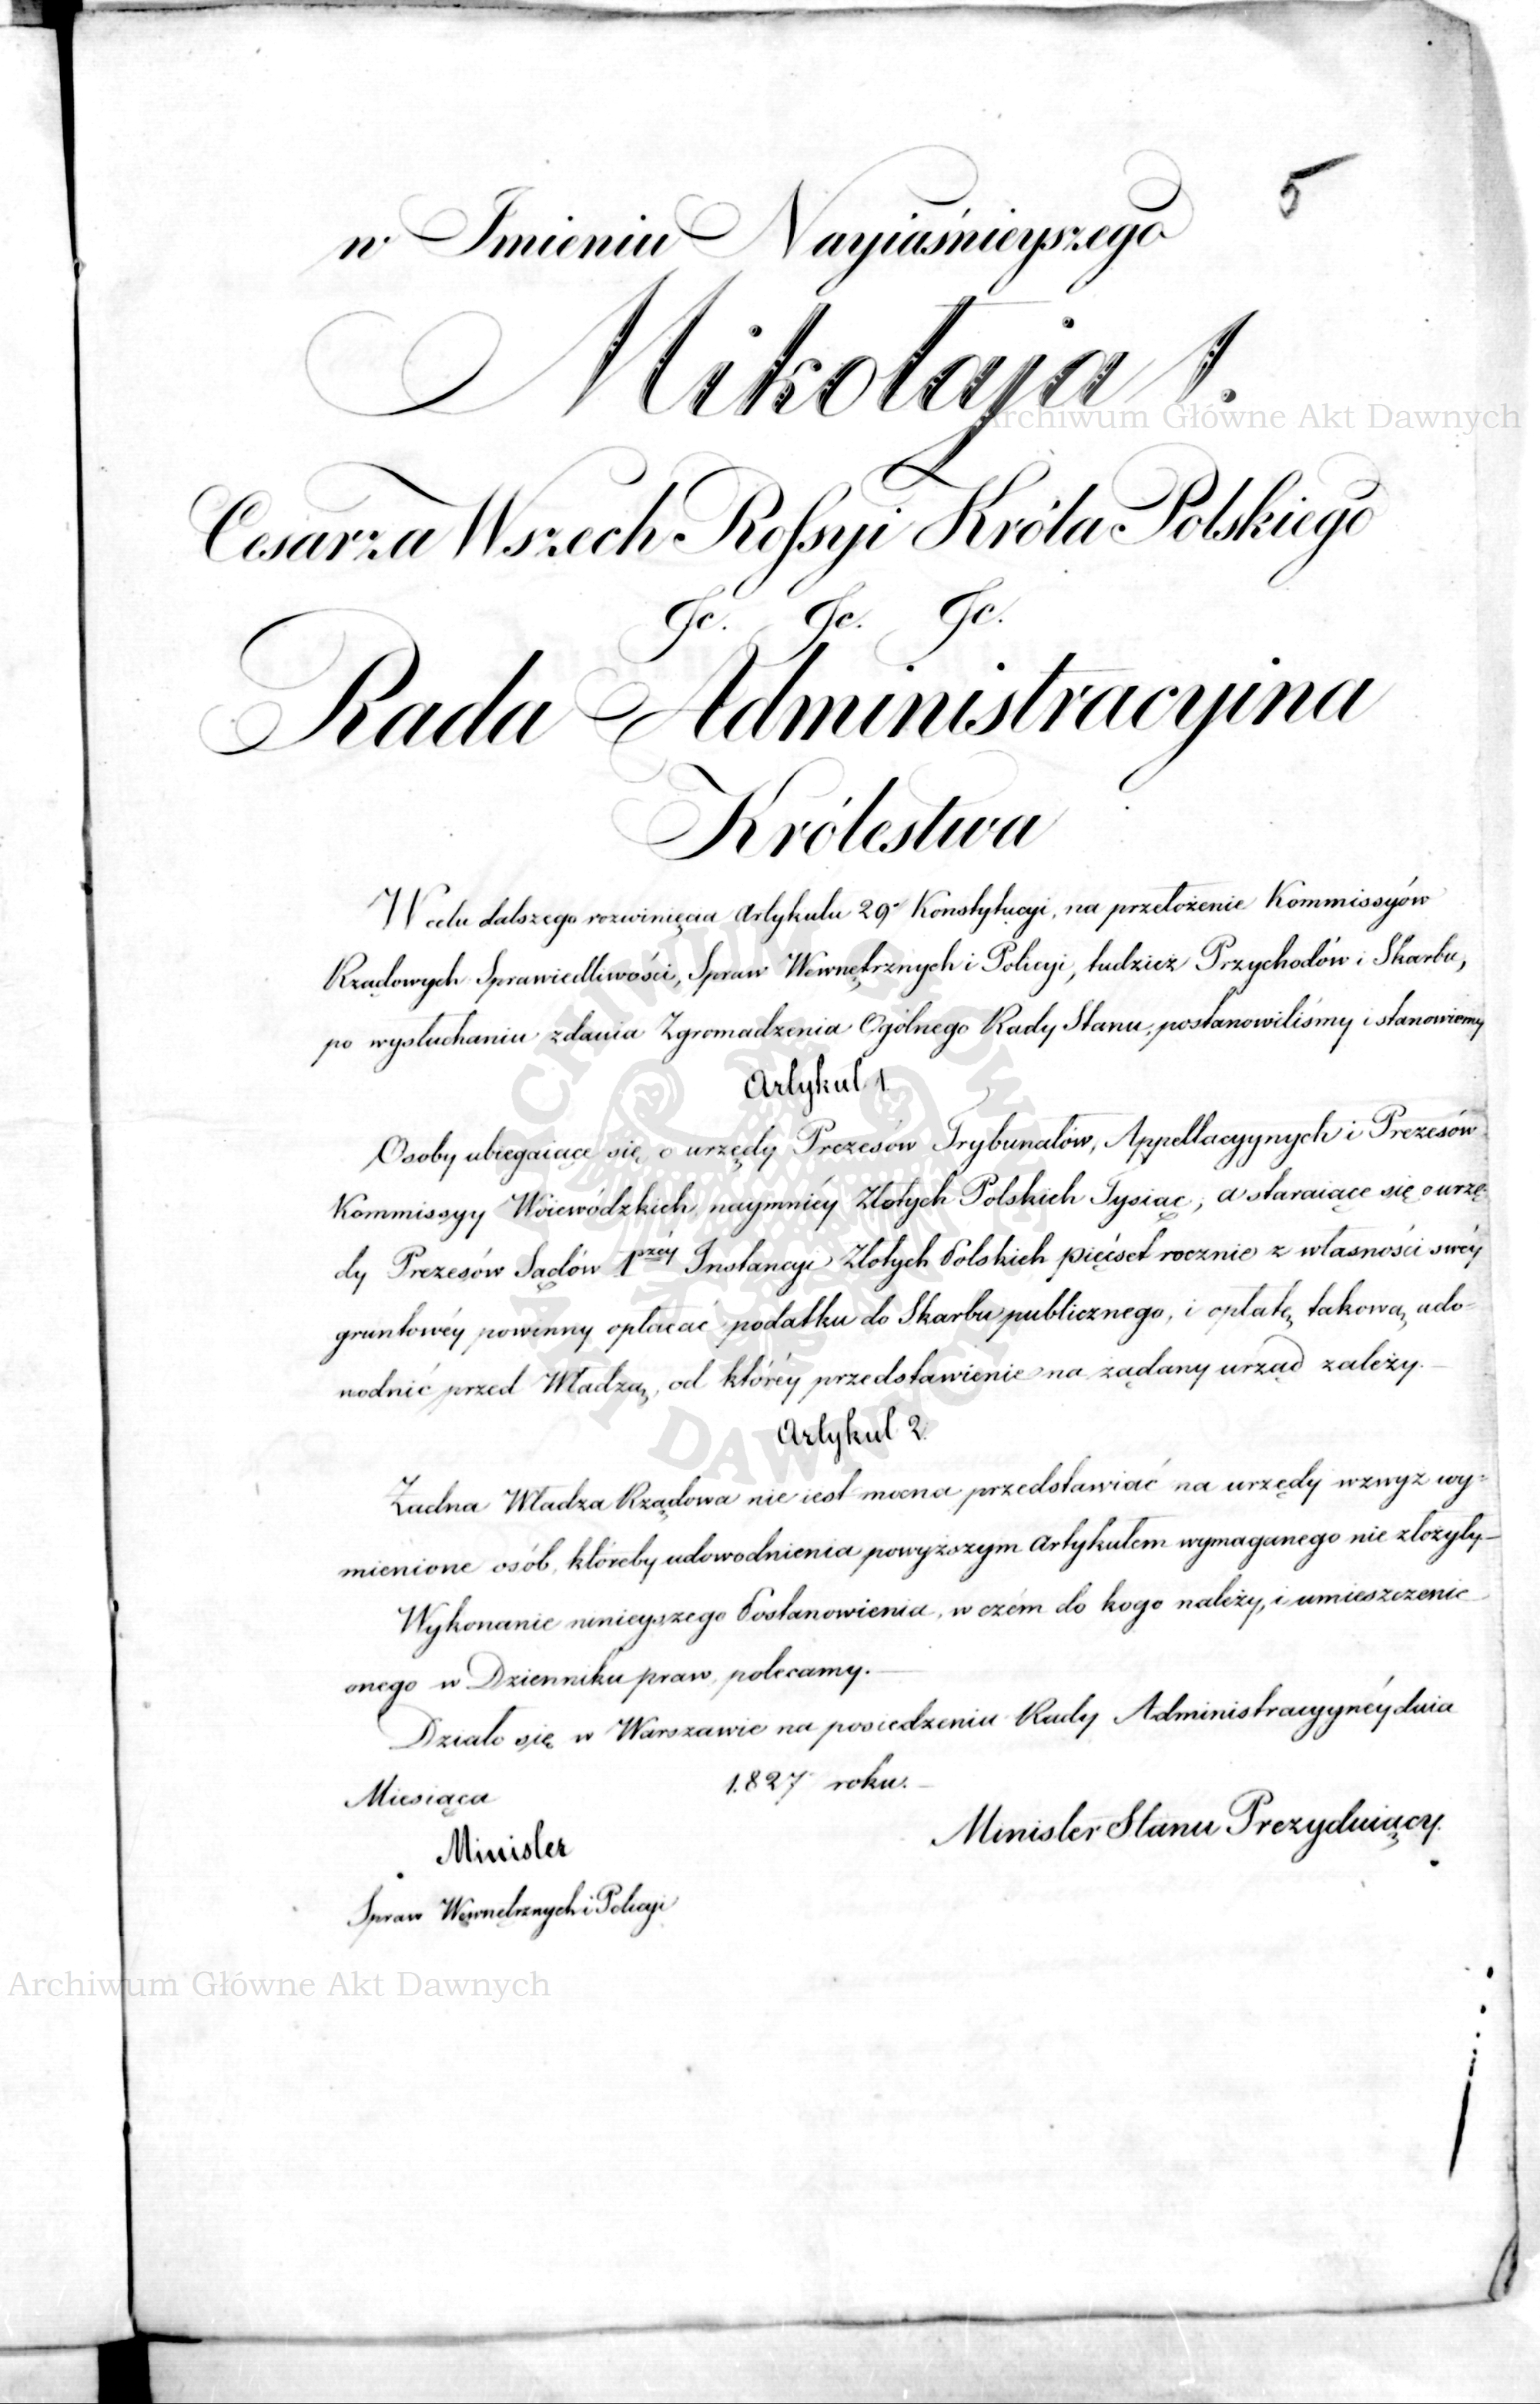 5
w Imieniu Nayiaśnieyszego
Mikołaja I.
Archiwum Główne Akt Dawnych
Cesarza Wszech Rossyi Króla Polskiego
&c. &c. &c.
Rada Administracyina
Królestwa
W celu dalszego rozwinięcia Artykułu 29º Konstytucyi, na przełożenie Kommissyów
Rządowych Sprawiedliwości, Spraw Wewnętrznych i Policyi, tudzież Przychodów i Skarbu,
po wysłuchaniu zdania Zgromadzenia Ogólnego Rady Stanu, postanowiliśmy i stanowiemy
Artykuł 1.
Osoby ubiegaiące się o urzędy Prezesów Trybunałów, Appellacyynych i Prezesów
Kommissyy Woiewódzkich naymniéy Złotych Polskich Tysiąc, a staraiące się o urzę-
dy Prezesów Sądów 1széy Instancyi Złotych Polskich pięćset rocznie z własności swéy
gruntowéy powinny opłacać podatku do Skarbu publicznego, i opłatę takową udo=
wodnić przed Władzą, od któréy przedstawienie na żądany urząd zależy.—
Artykuł 2.
Żadna Władza Rządowa nie iest mocna przedstawiać na urzędy wzwyż wy=
mienione osób, któreby udowodnienia powyższym Artykułem wymaganego nie złożyły—
Wykonanie ninieyszego Postanowienia, w czém do kogo należy, i umieszczenie
onego w Dzienniku praw, polecamy.—
Działo się w Warszawie na posiedzeniu Rady Administracyynéy dnia
Miesiąca 1827 roku.—
Minister Stanu Prezyduiący.
Minister
Spraw Wewnętrznych i Policyi
Archiwum Główne Akt Dawnych
ARCHIWUM GŁÓWNE AKT DAWNYCH